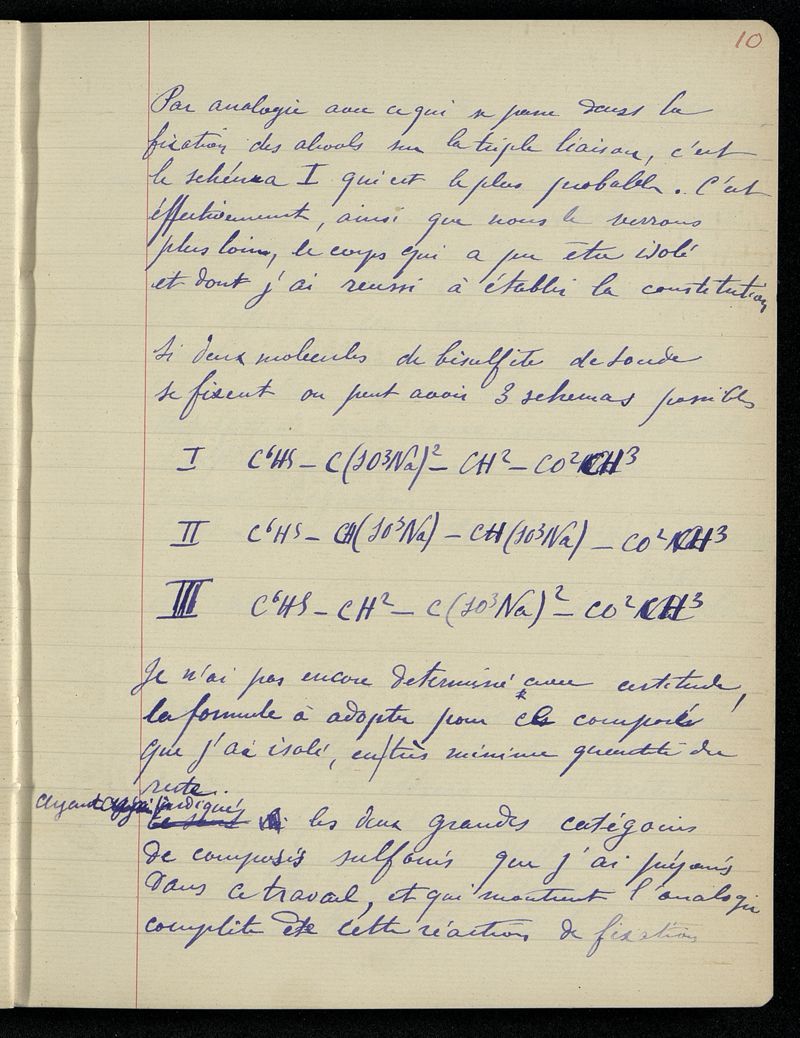 10
Par analogie avec ce qui se passe dans la
fixation des alcools sur la triple liaison, c'est
le schéma I qui est le plus probable. C'est
éffectivement, ainsi que nous le verrons
plus loin, le corps qui a pu être isolé
et dont j'ai reussi à établir la constitution
Si deux molecules de bisulfite de soude
se fixent on peut avoir 3 schemas possibles
I C⁶H⁵ – C(SO³Na)² – CH² – CO²CH³
II C⁶H⁵ – CH(SO³Na) – CH(SO³Na) – CO²CH³
III C⁶H⁵ – CH² – C(SO³Na)² – CO²CH³
Je n'ai pas encore determiné avec certitude,
la formule à adopter pour ce composé
que j'ai isolé, en très minime quantité du
reste.
Ayant indiqué
les deux grandes catégories
de composés sulfonés que j'ai préparés
dans ce travail, et qui montrent l'analogie
complète de cette réaction de fixation